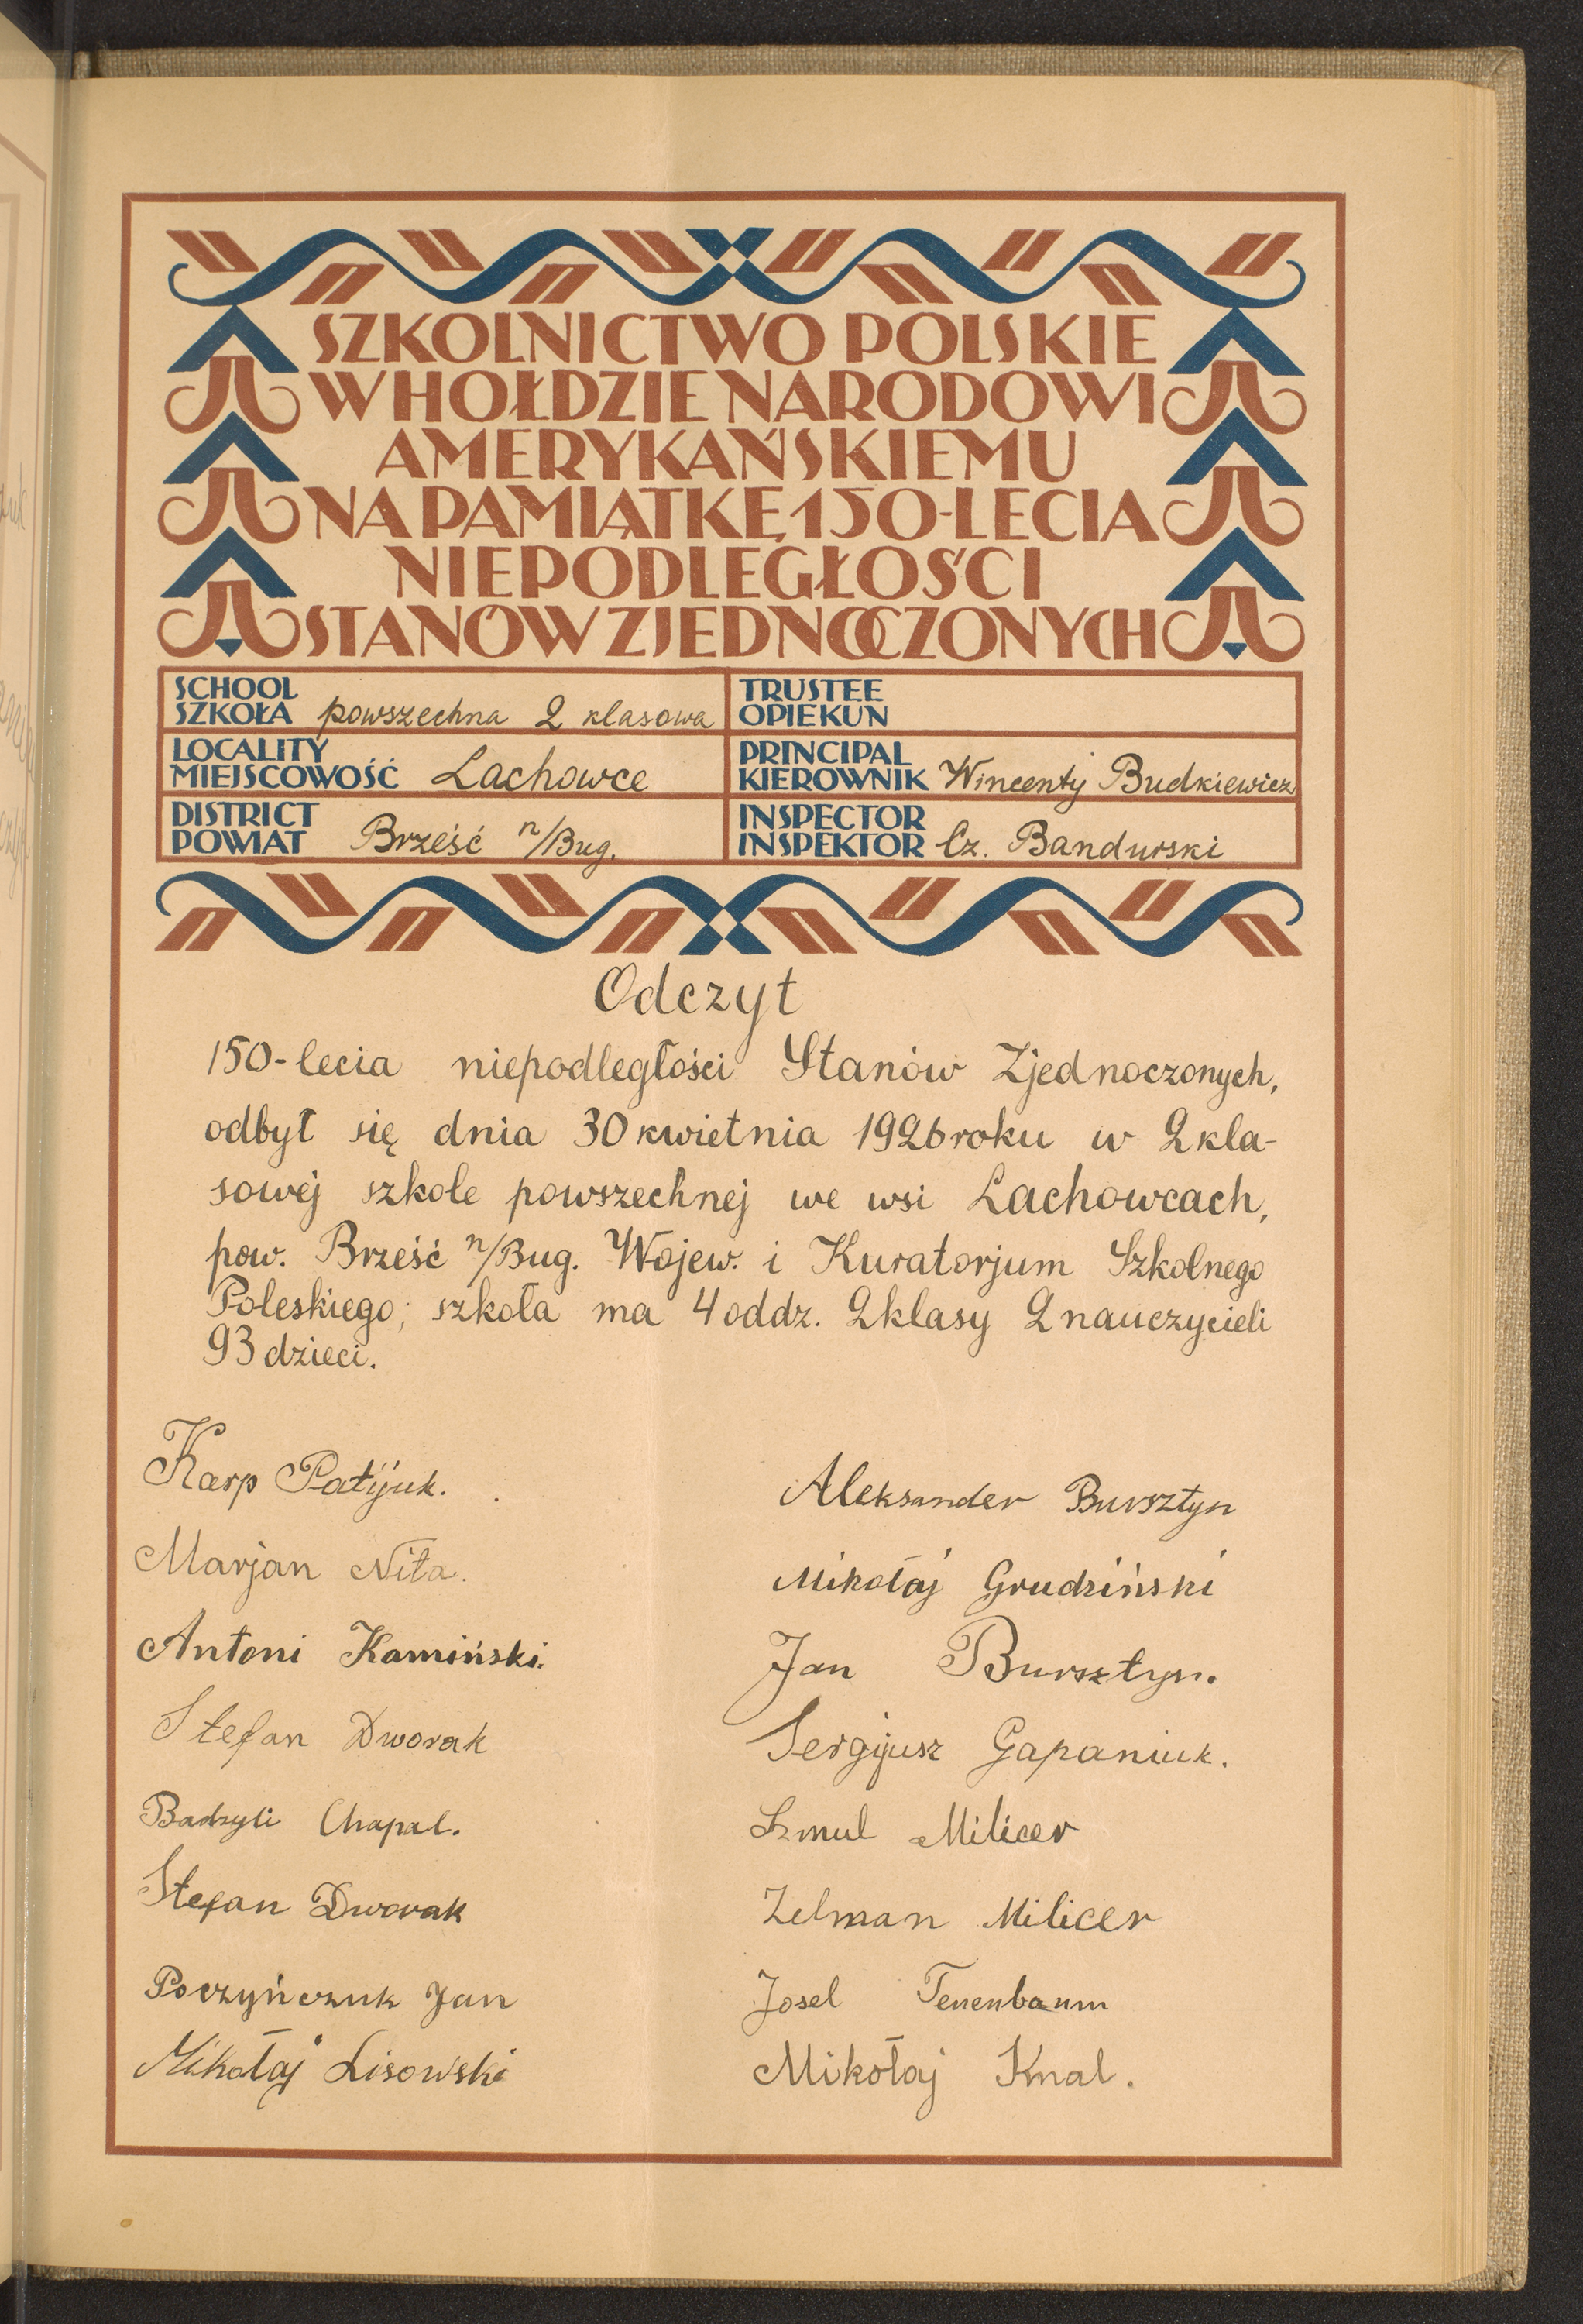 SZKOLNICTWO POLSKIE
W HOŁDZIE NARODOWI
AMERYKAŃSKIEMU
NA PAMIĄTKĘ 150-LECIA
NIEPODLEGŁOŚCI
STANÓW ZJEDNOCZONYCH
SCHOOL
SZKOŁA powszechna 2 klasowa
TRUSTEE
OPIEKUN
LOCALITY
MIEJSCOWOŚĆ Lachowce
PRINCIPAL
KIEROWNIK Wincenty Budkiewicz
DISTRICT
POWIAT Brześć n/Bug.
INSPECTOR
INSPEKTOR Cz. Bandurski
Odczyt
150-lecia niepodległości Stanów Zjednoczonych,
odbył się dnia 30 kwietnia 1926 roku w 2 kla-
sowej szkole powszechnej we wsi Lachowcach,
pow. Brześć n/Bug. Wojew. i Kuratorjum Szkolnego
Poleskiego; szkoła ma 4 oddz. 2 klasy 2 nauczycieli
93 dzieci.
Karp Patijuk.
Marjan Nita.
Antoni Kamiński.
Stefan Dworak
Badzyli Chapal.
Stefan Dworak
Poczyńczuk Jan
Mikołaj Lisowski
Aleksander Bursztyn
Mikołaj Grudziński
Jan Bursztyn.
Sergijusz Gapaniuk.
Szmul Milicer
Zelman Milicer
Josel Tenenbaum
Mikołaj Knal.